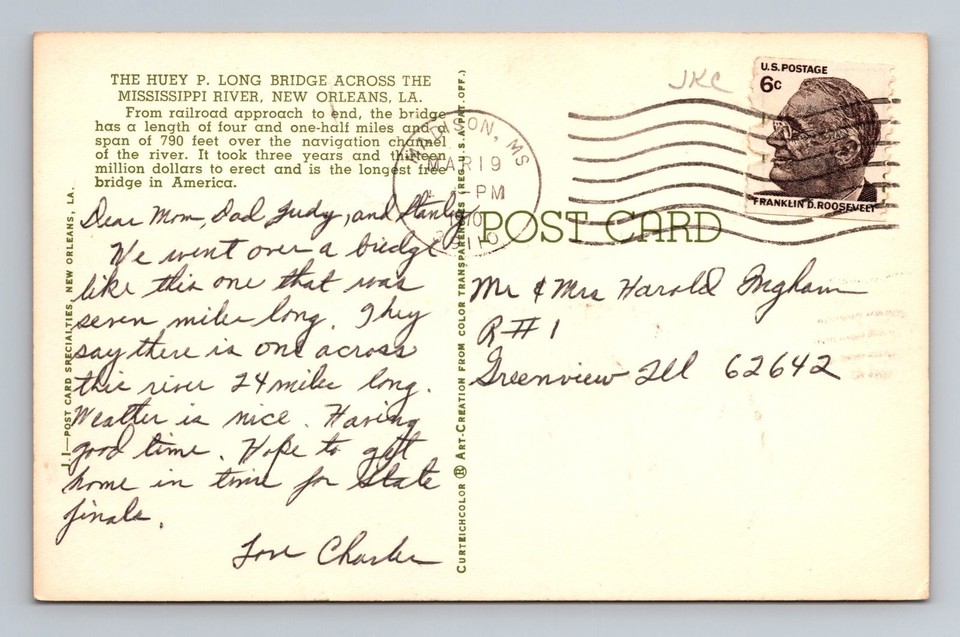 THE HUEY P. LONG BRIDGE ACROSS THE
MISSISSIPPI RIVER, NEW ORLEANS, LA.
From railroad approach to end, the bridge
has a length of four and one-half miles and a
span of 790 feet over the navigation channel
of the river. It took three years and thirteen
million dollars to erect and is the longest free
bridge in America.
Dear Mom, Dad, Judy, and Stanley,
We went over a bridge
like this one that was
seven miles long. They
say there is one across
this river 24 miles long.
Weather is nice. Having
good time. Hope to get
home in time for State
finals.
Love Charles
J. I—POST CARD SPECIALTIES, NEW ORLEANS, LA.
CURTEICHCOLOR ® ART-CREATION FROM COLOR TRANSPARENCIES (REG. U.S.A. PAT. OFF.)
JKC
MADISON, MS
MAR 19
PM
1970
U.S. POSTAGE
6c
FRANKLIN D. ROOSEVELT
POST CARD
Mr & Mrs Harold Ingham
R # 1
Greenview Ill 62642